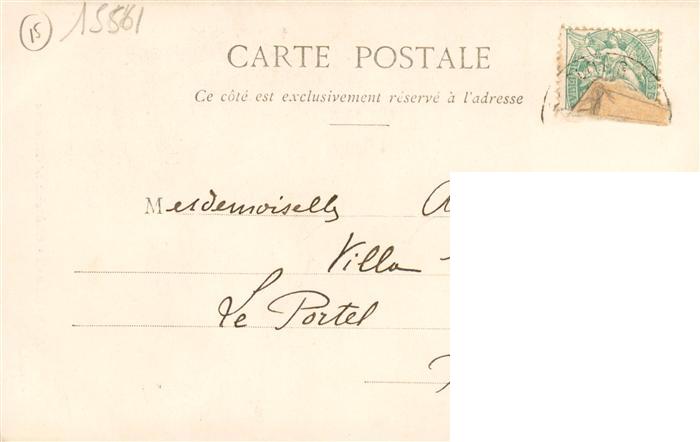 15
15561
CARTE POSTALE
Ce côté est exclusivement réservé à l'adresse
Mesdemoiselles
Villa
Le Portel